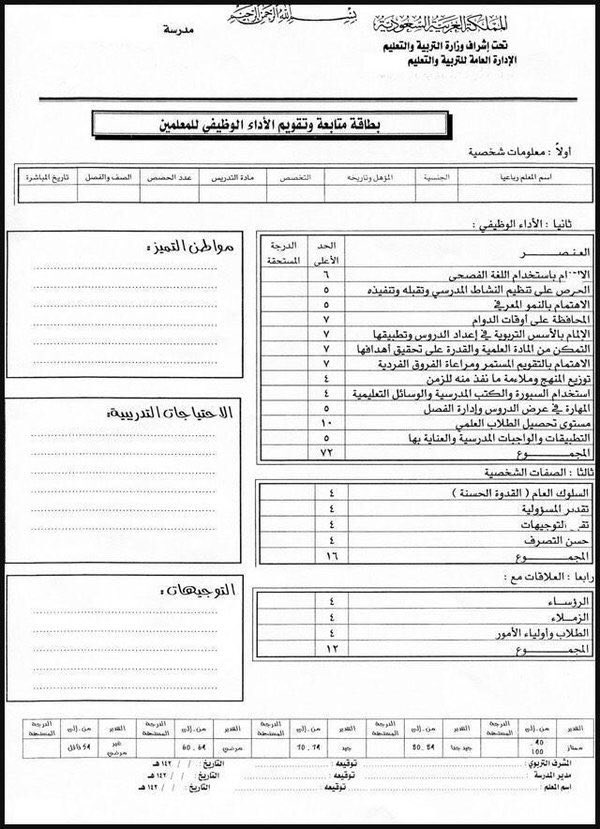 بسم الله الرحمن الرحيم
المملكة العربية السعودية
تحت إشراف وزارة التربية والتعليم
الإدارة العامة للتربية والتعليم
مدرسة
بطاقة متابعة وتقويم الأداء الوظيفي للمعلمين
أولاً : معلومات شخصية
اسم المعلم رباعيا | الجنسية | المؤهل وتاريخه | التخصص | مادة التدريس | عدد الحصص | الصف والفصل | تاريخ المباشرة
ثانيا : الأداء الوظيفي :
العنصر | الحد الأعلى | الدرجة المستحقة
باستخدام اللغة الفصحى | ٦
الحرص على تنظيم النشاط المدرسي وتقبله وتنفيذه | ٥
الاهتمام بالنمو المعرفي | ٥
المحافظة على أوقات الدوام | ٧
الإلمام بالأسس التربوية في إعداد الدروس وتطبيقها | ٧
التمكن من المادة العلمية والقدرة على تحقيق أهدافها | ٧
الاهتمام بالتقويم المستمر ومراعاة الفروق الفردية | ٧
توزيع المنهج وملاءمة ما نفذ منه للزمن | ٤
استخدام السبورة والكتب المدرسية والوسائل التعليمية | ٤
المهارة في عرض الدروس وإدارة الفصل | ٥
مستوى تحصيل الطلاب العلمي | ١٠
التطبيقات والواجبات المدرسية والعناية بها | ٥
المجموع | ٧٢
ثالثا : الصفات الشخصية
السلوك العام ( القدوة الحسنة ) | ٤
تقدير المسؤولية | ٤
التوجيهات | ٤
حسن التصرف | ٤
المجموع | ١٦
رابعا : العلاقات مع :
الرؤساء | ٤
الزملاء | ٤
الطلاب وأولياء الأمور | ٤
المجموع | ١٢
مواطن التميز :
الاحتياجات التدريبية:
التوجيهات :
التقدير | من . إلى | الدرجة المستحقة | التقدير | من . إلى | الدرجة المستحقة | التقدير | من . إلى | الدرجة المستحقة | التقدير | من . إلى | الدرجة المستحقة | التقدير | من . إلى | الدرجة المستحقة
ممتاز | 90 . 100 | جيد جدا | 80 . 89 | جيد | 70 . 79 | مرضي | 60 . 69 | غير مرضي | 59 فأقل
المشرف التربوي : توقيعه : التاريخ : / / ١٤٢ هـ
مدير المدرسة : توقيعه : التاريخ : / / ١٤٢ هـ
اسم المعلم : توقيعه : التاريخ : / / ١٤٢ هـ